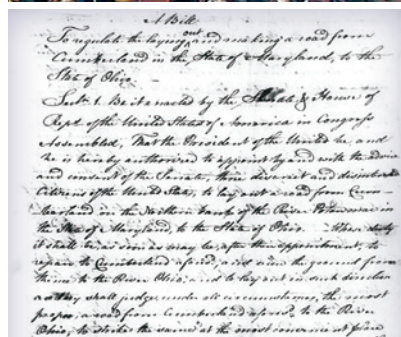 A Bill
To regulate the laying out and making a road from
Cumberland in the State of Maryland, to the
State of Ohio.
Sect. 1. Be it enacted by the Senate & House of
Rept. of the United States of America in Congress
Assembled, That the President of the United be, and
he is hereby authorised to appoint by and with the advice
and consent of the Senate, three discreet and disinterested
Citizens of the United States, to lay out a road from Cum-
berland in the Northern bank of the River Potowmac in
the State of Maryland, to the State of Ohio. Whose duty
it shall be as soon as may be, after their appointment, to
repair to Cumberland aforesd, and view the ground from
thence to the River Ohio; and to lay out in such direction
as they shall judge, under all circumstances, the most
proper, a road from Cumberland aforesd. to the River
Ohio, to strike the same at the most convenient place